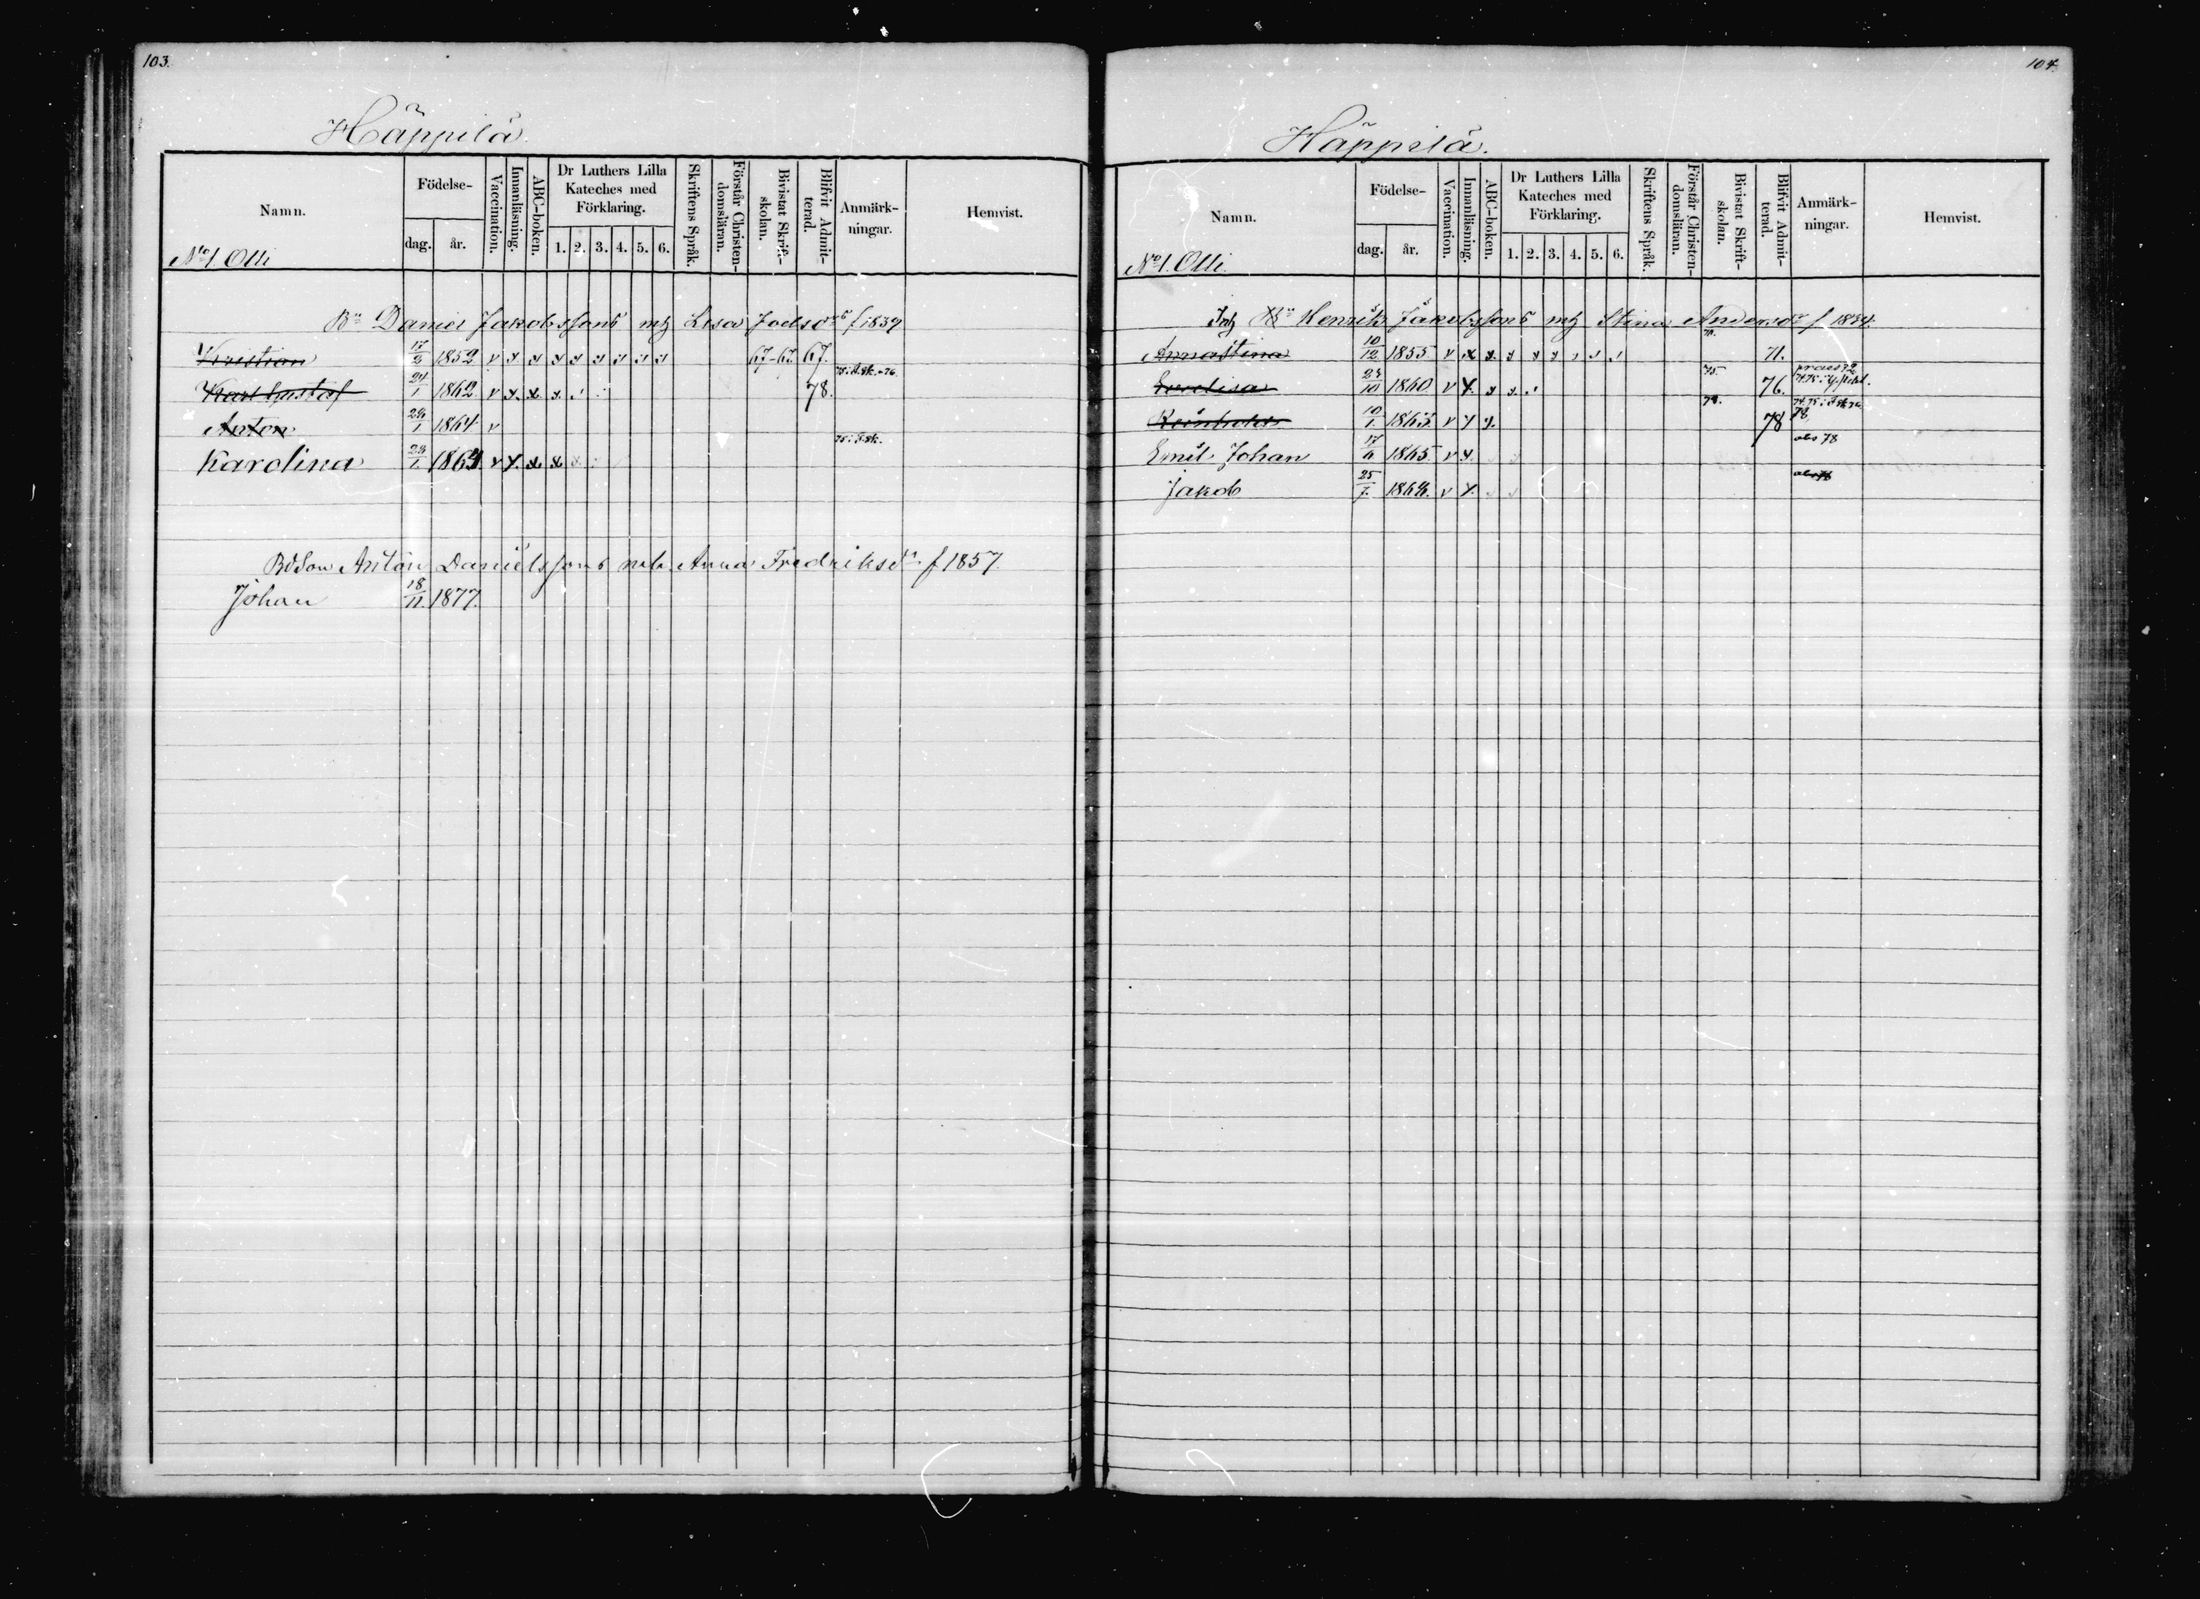 103.
Häppilä.
Namn. Födelse- dag. år. Vaccination. Innanläsning. ABC-boken. Dr Luthers Lilla Kateches med Förklaring. 1. 2. 3. 4. 5. 6. Skriftens Språk. Förstår Christendomsläran. Bivistat Skriftskolan. Blifvit Admitterad. Anmärkningar. Hemvist.
No 1. Olli
Bn Daniel Jakobssons mh Lisa Joelsdr f 1839
Kristian 17/2 1852 v 67-67. 67.
Karl Gustaf 24/1 1862 v 78.
Anton 24/1 1864 v
Karolina 24/1 1864 v
Bdson Anton Danielssons Anna Fredriksdr f 1857.
Johan 18/11 1877.
104.
Häppilä.
Namn. Födelse- dag. år. Vaccination. Innanläsning. ABC-boken. Dr Luthers Lilla Kateches med Förklaring. 1. 2. 3. 4. 5. 6. Skriftens Språk. Förstår Christendomsläran. Bivistat Skriftskolan. Blifvit Admitterad. Anmärkningar. Hemvist.
No 1. Olli.
Inh Bn Henrik Jakobssons mh Stina Andersdr f 1834
Annastina 10/12 1855 v 71.
Evalisa 23/10 1860 v 75. 76.
10/1 1863 v 78. 78
Emil Johan 17/6 1865 v abs 78
Jakob 25/7 1868 v